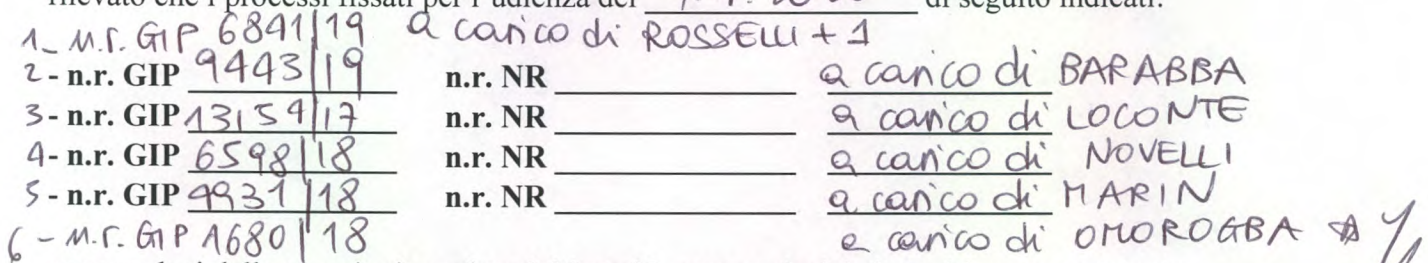 rilevato che i processi fissati per l'udienza del di seguito indicati:
1_ n.r. GIP 6841/19 a carico di ROSSELLI + 1
2 - n.r. GIP 9443/19 n.r. NR a carico di BARABBA
3 - n.r. GIP 13159/17 n.r. NR a carico di LOCONTE
4 - n.r. GIP 6598/18 n.r. NR a carico di NOVELLI
5 - n.r. GIP 9931/18 n.r. NR a carico di MARIN
6 - n.r. GIP 1680/18 a carico di OMOROGBA